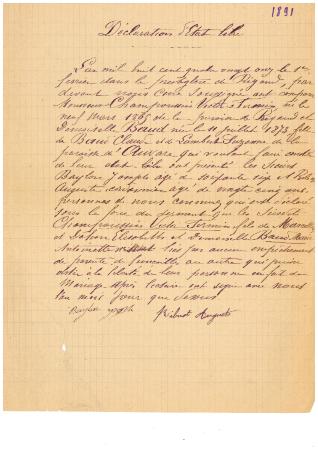 1891
Déclarations d'Etat libre
L'an mil huit cent quatre vingt onze le 1er
février dans le presbytère de Rigaud, par
devant nous Curé soussigné ont comparu
Monsieur Champoussin Victor Firmin né le
neuf Mars 1865 de la paroisse de Rigaud et
Demoiselle Baud née le 11 juillet 1873 fille
de Baud Claude et de Lambert Suzanne de la
paroisse d'
de leur état libre ont présenté les Sieurs
Baylon Joseph agé de soixante six et Ribut
Auguste agé de vingt cinq ans
personnes de nous connues, qui ont déclaré
sous la foi du serment que les Sieurs
Champoussin Victor Firmin fils de
et et Demoiselle Baud Marie
Antoinette liés par aucun empêchement
de parenté de famille ou autre qui puisse
obster à la liberté de leur personne en fait de
Mariage. Après lecture ont signé avec nous
l'an mois jour que dessus
Baylon Joseph Auguste